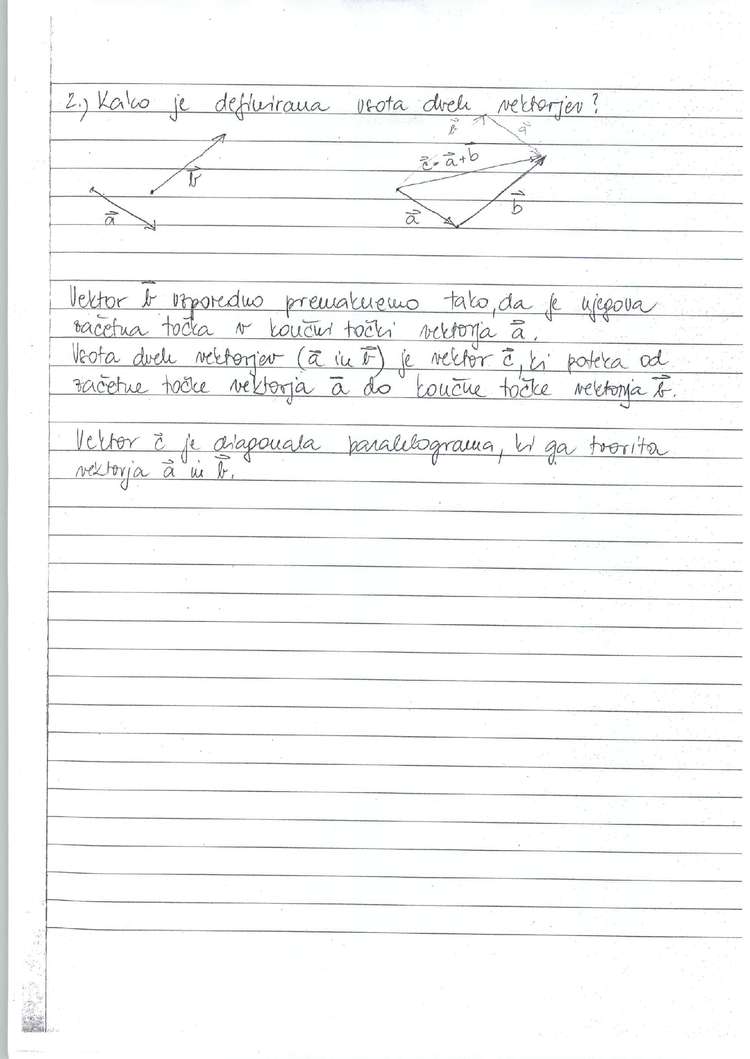 2.) Kako je definirana vsota dveh vektorjev?
b⃗ a⃗
c⃗ = a⃗ + b⃗
b⃗
a⃗ a⃗ b⃗
Vektor b⃗ vzporedno premaknemo tako, da je njegova
začetna točka v končni točki vektorja a⃗.
Vsota dveh vektorjev (a⃗ in b⃗) je vektor c⃗, ki poteka od
začetne točke vektorja a⃗ do končne točke vektorja b⃗.
Vektor c⃗ je diagonala paralelograma, ki ga tvorita
vektorja a⃗ in b⃗.